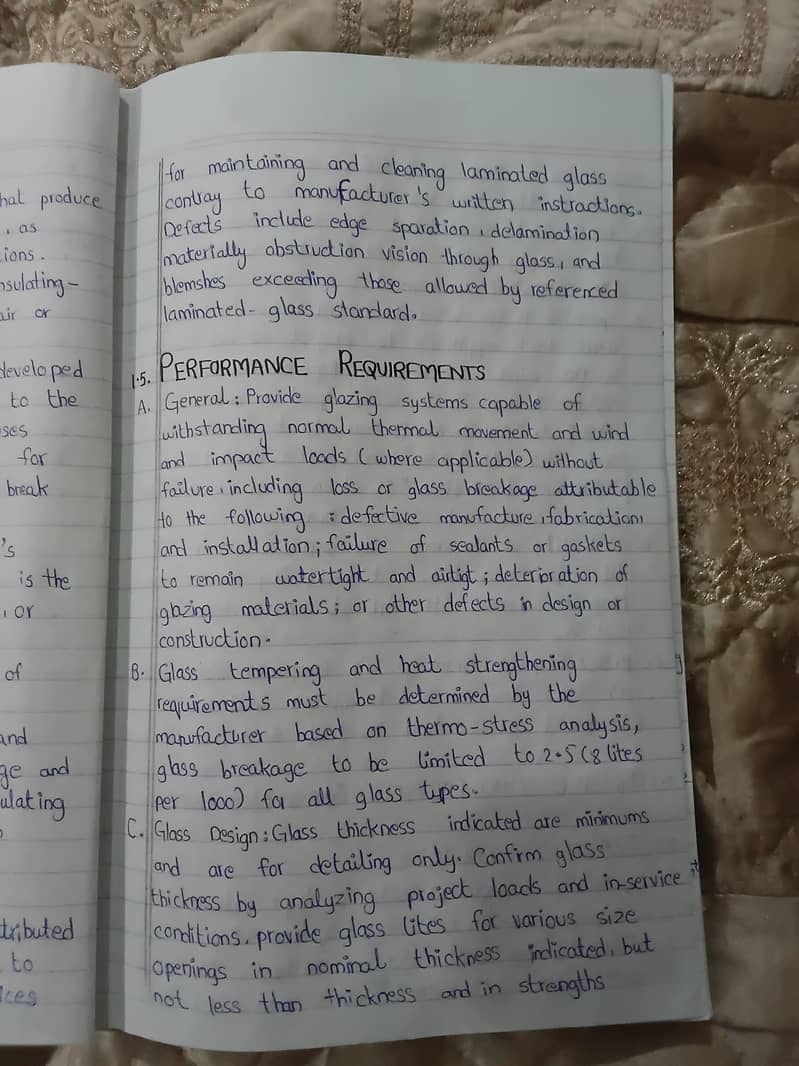 hat produce
, as
ions.
nsulating-
air or
developed
to the
ses
for
break
's
is the
, or
of
and
ge and
ulating
tributed
to
ices
for maintaining and cleaning laminated glass
contray to manufacturer's written instractions.
Defects include edge sparation, delamination
materially obstruction vision through glass, and
blemshes exceeding those allowed by referenced
laminated-glass standard.
1.5. PERFORMANCE REQUIREMENTS
A. General: Provide glazing systems capable of
withstanding normal thermal movement and wind
and impact loads (where applicable) without
failure, including loss or glass breakage attributable
to the following: defective manufacture, fabrication,
and installation; failure of sealants or gaskets
to remain watertight and airtigt; deterioration of
glazing materials; or other defects in design or
construction.
B. Glass tempering and heat strengthening
requirements must be determined by the
manufacturer based on thermo-stress analysis,
glass breakage to be limited to 2.5 (8 lites
per 1000) for all glass types.
C. Glass Design: Glass thickness indicated are minimums
and are for detailing only. Confirm glass
thickness by analyzing project loads and in-service
conditions. provide glass lites for various size
openings in nominal thickness indicated, but
not less than thickness and in strengths